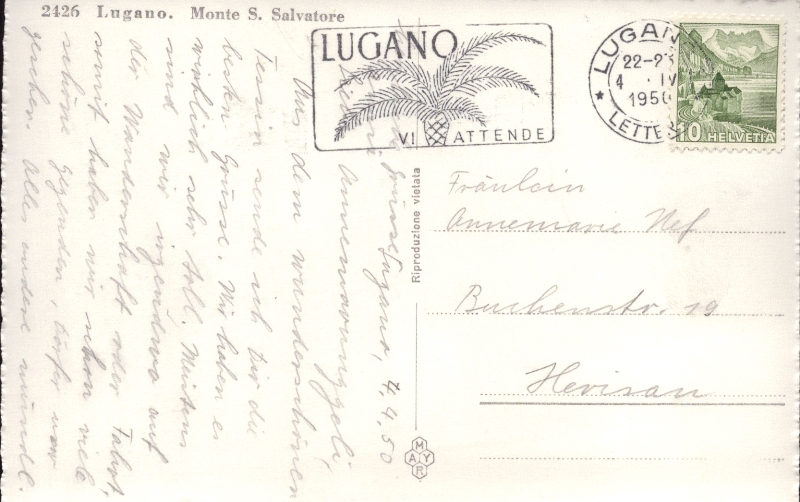 2426 Lugano. Monte S. Salvatore
LUGANO
VI ATTENDE
LUGAN
22-23
4. IV
1950
LETTE
10 HELVETIA
Riproduzione vietata
MAYR
Fräulein
Annemarie Nef
Buchenstr. 19
Herisau
Lugano, 4.4.50
Aus dem wunderschönen
Tessin sende ich Dir die
besten Grüsse. Wir haben es
wirklich sehr toll. Meistens
sind wir irgendwo auf
der Wanderschaft oder Fahrt,
somit haben wir schon viele
schöne Gegenden, Dörfer usw
gesehen. Alles andere mündl.
Grüsse